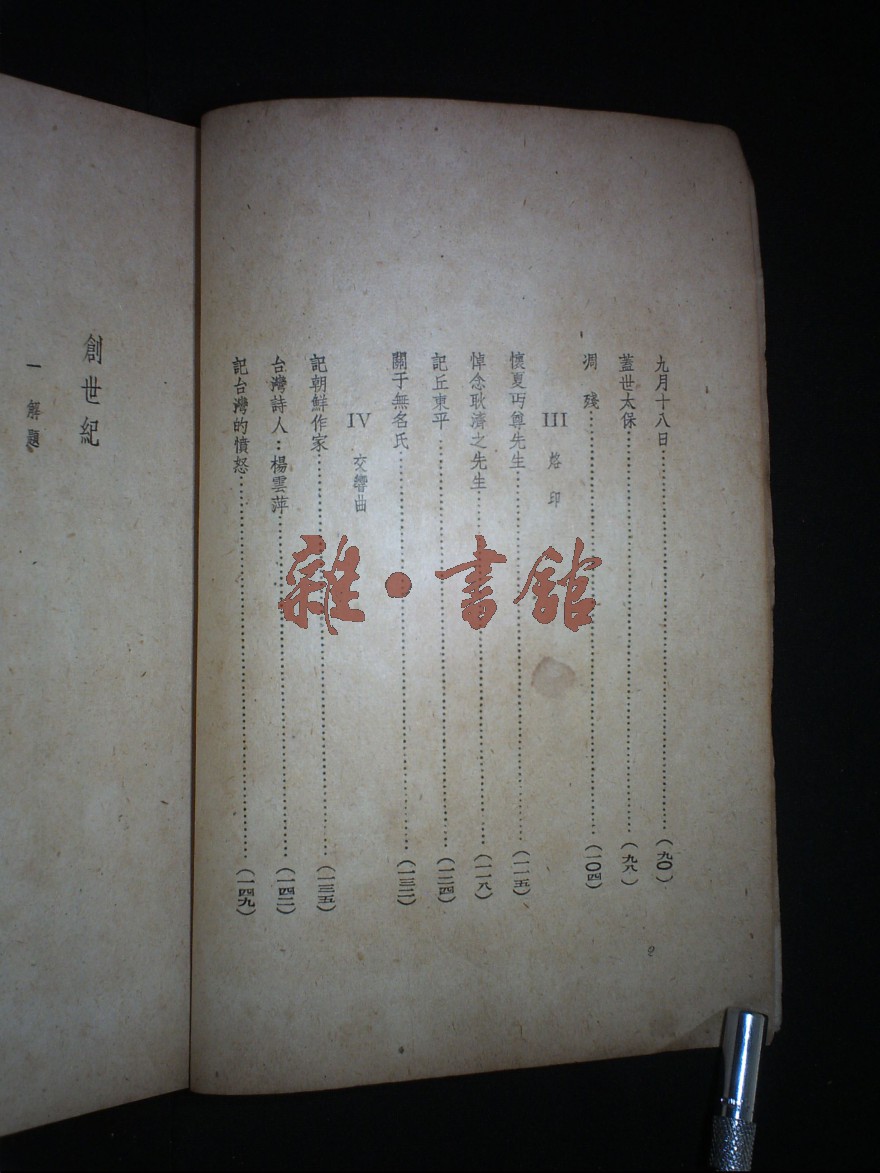 九月十八日……(九〇)
蓋世太保……(九八)
凋 殘……(一〇四)
III 烙 印
懷夏丏尊先生……(一一五)
悼念耿濟之先生……(一一八)
記丘東平……(一二四)
關于無名氏……(一三二)
IV 交響曲
記朝鮮作家……(一三五)
台灣詩人:楊雲萍……(一四二)
記台灣的憤怒……(一四九)
2
創世紀
一 解題
雜•書館